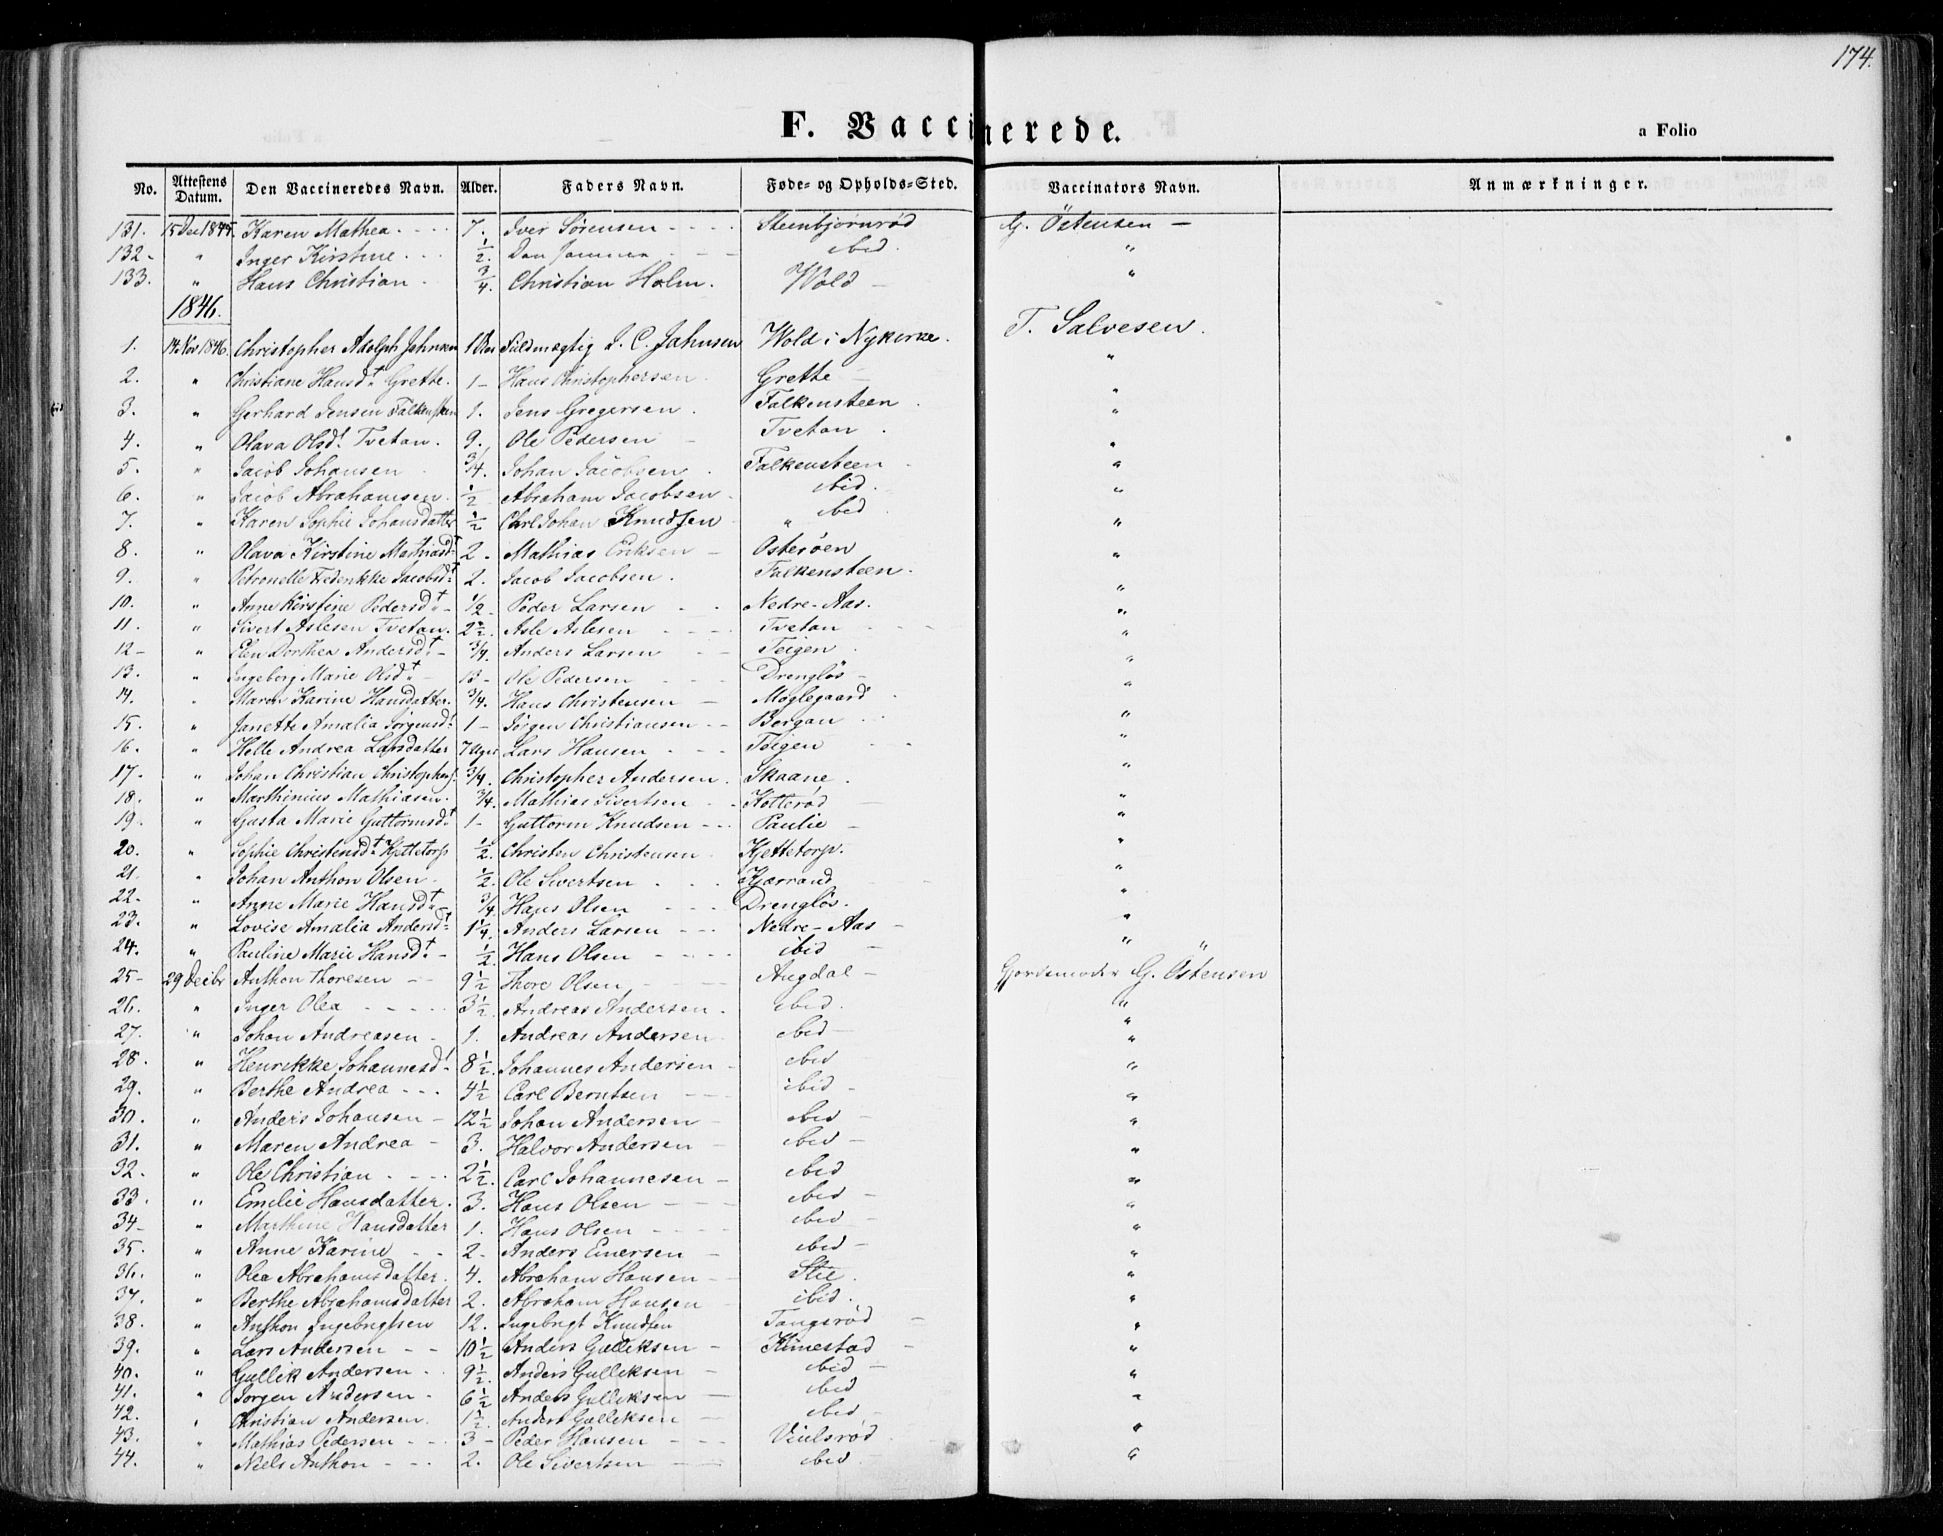 174.
F. Vaccinerede.
a Folio
No. Attestens Datum. Den Vaccineredes Navn. Alder. Faders Navn. Føde- og Opholds-Sted. Vaccinators Navn. Anmærkninger.
131. 15 Dec 1845. Karen Mathea 7. Iver Sörensen Steenbjørnrød G. Östensen
132 " Inger Kirstine ½ Den Samme ibid "
133. " Hans Christian ¾ Christian Holm. Wold "
1846.
1. 14 Nov 1846. Christopher Adolph Jahnsen 1 Fuldmægtig C. Jahnsen Wold i Nykirke. T. Salvesen.
2. " Christiane Hansdt Grette. 1 Hans Christophersen Grette "
3. " Gerhard Jensen Falkensten 1. Jens Gregersen Falkensteen "
4. " Olava Olsdt. Tvetan. 9. Ole Pedersen Tvetan "
5. " Jacob Johansen ¾. Johan Jacobsen Falkensteen "
6. " Jacob Abrahamsen. ½ Abraham Jacobsen ibid "
7. " Karen Sophie Johansdatter ½ Carl Johan Knudsen " ibid "
8. " Olava Kirstine Mathiasdt 2. Mathias Eriksen Osterøen "
9. " Petronelle Federikke Jacobsdt 2. Jacob Jacobsen. Falkensteen. "
10. " Anne Kirstine Pedersdt ½ Peder Larsen Nedre-Aas. "
11. " Sivert Aslesen Tvetan. 2½. Asle Aslesen Tvetan "
12 " Elen Dorthea Andersdt ¾. Anders Larsen Teigen "
13. " Ingeborg Marie Olsdt 13 Ole Pedersen Drengløs "
14. " Maren Karine Hansdatter. ¾. Hans Christensen Moglegaard "
15. " Janette Amalia Jørgensdt 1 Jörgen Christiansen Borgan "
16. " Helle Andrea Larsdatter 7 Uger Lars Hansen Teigen "
17. " Johan Christian Christophers. ¾. Christopher Andersen. Skaane. "
18. " Marthinius Mathiasen. ¾. Mathias Sivertsen Kolterød "
19. " Gusta Marie Guttormsdt 1 Guttorm Knudsen Paulie "
20. " Sophie Christensdt Kjettetorp ½. Christen Christensen Kjettetorp. "
21. " Johan Anthon Olsen. ½. Ole Sivertsen Kjærrand "
22. " Anne Marie Hansdt ¾ Hans Olsen Drengløs. "
23. " Lovise Amalia Andersdt 1¼. Anders Larsen Nedre-Aas "
24. " Pauline Marie Hansdt ½ Hans Olsen ibid "
25 29 Decbr Anthon Thoresen 9½ Thore Olsen Augdal Gjordemoder G. Östensen
26. " Inger Olea 3½. Andreas Andersen. ibid. "
27. " Johan Andreasen 1. Andreas Andersen ibid "
28. " Henrikke Johannesdt 8½. Johannes Andersen ibid "
29. " Berthe Andrea 4½ Carl Berntsen ibid "
30. " Anders Johansen 12½ Johan Andersen ibid "
31. " Maren Andrea 3. Halvor Andersen ibid "
32. " Ole Christian 2½. Carl Johannesen ibid "
33. " Emilie Hansdatter. 3. Hans Olsen ibid "
34 " Marthine Hansdatter 1. Hans Olsen ibid "
35. " Anne Karine 2 Anders Einersen ibid "
36. " Olea Abrahamsdatter. 4. Abraham Hansen Stie. "
37. " Berthe Abrahamsdatter 2. Abraham Hansen ibid. "
38. " Anthon Ingebrigtsen 12. Ingebrigt Knudsen Tangsrød "
39. " Lars Andersen 10½ Anders Gulliksen Kimestad "
40. " Gullik Andersen. 9½. Anders Gulliksen ibid "
41. " Jorgen Andersen 6½ Anders Gulliksen ibid "
42. " Christian Andersen. 1½. Anders Gulliksen ibid "
43. " Mathias Pedersen 3 Peder Hansen Viulsrød "
44. " Niels Anthon 2. Ole Sivertsen ibid "